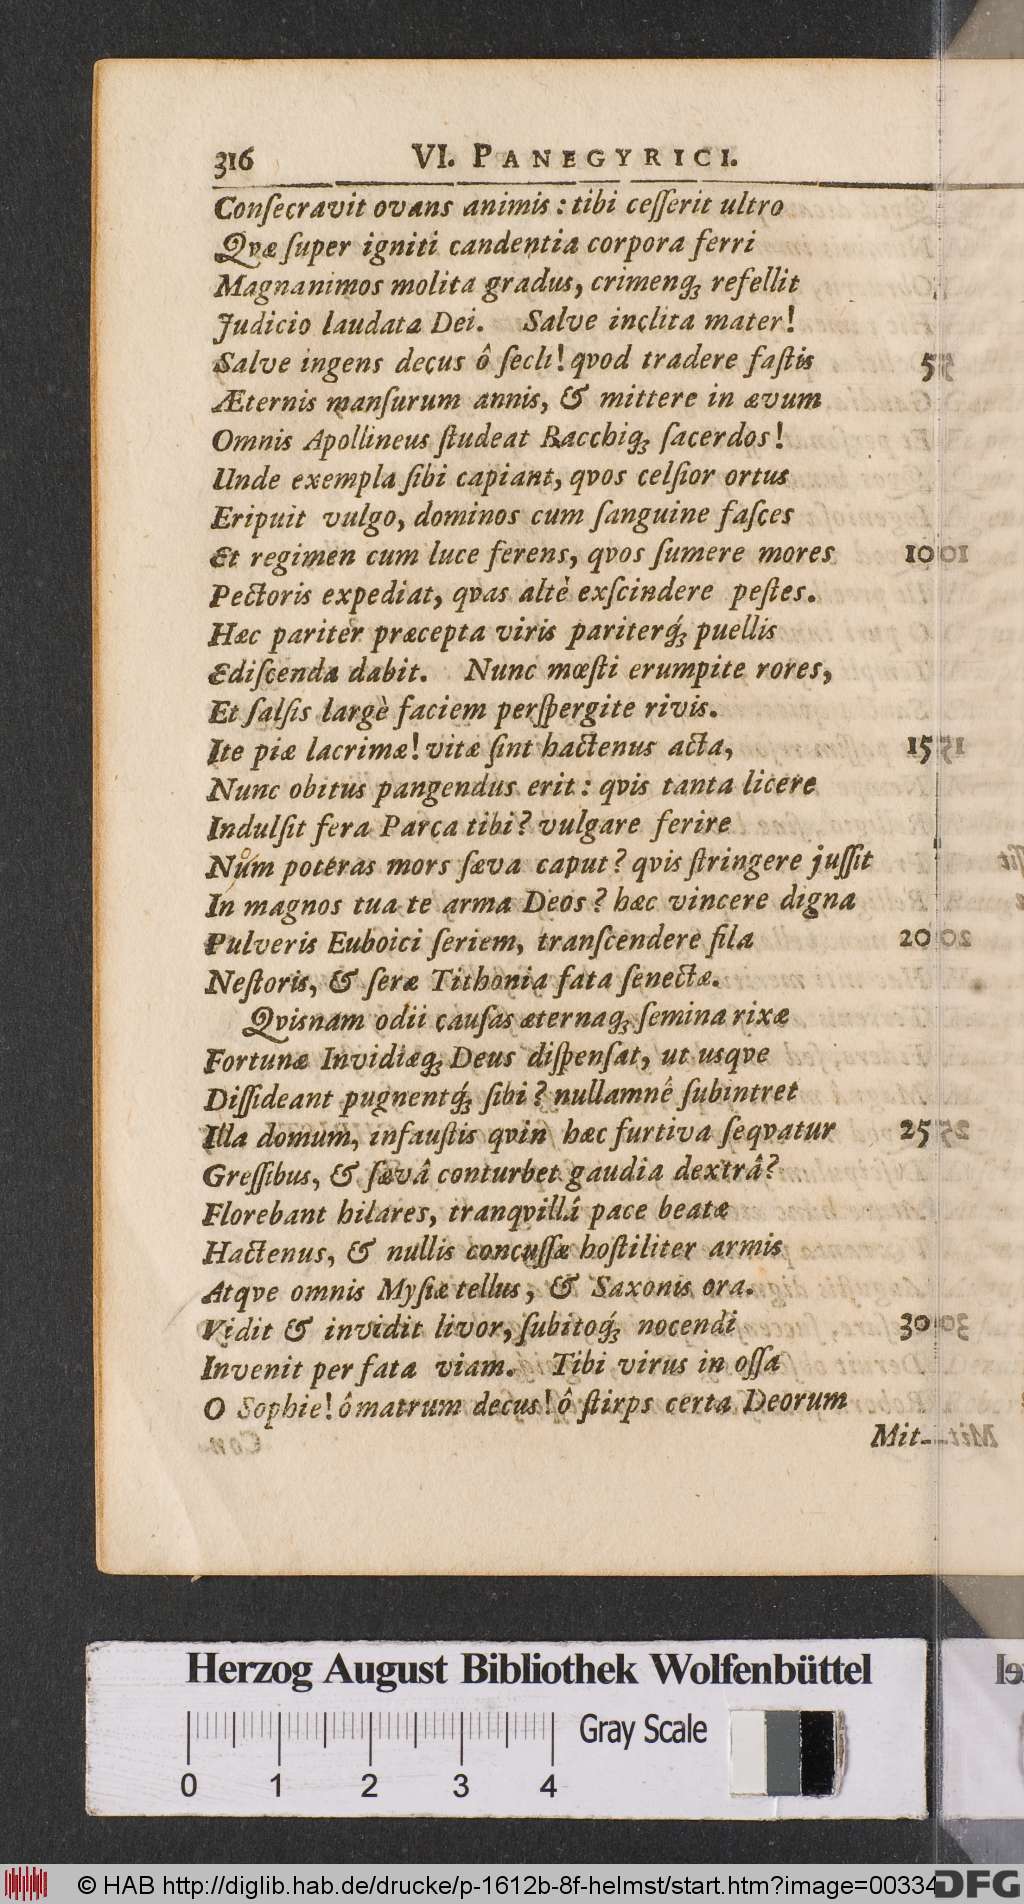 316 VI. PANEGYRICI.
Conſecravit ovans animis : tibi ceſſerit ultro
Qvæ ſuper igniti candentia corpora ferri
Magnanimos molita gradus, crimenq́ꝫ refellit
Judicio laudata Dei. Salve inclita mater!
Salve ingens decus ô ſecli! qvod tradere faſtis 5
Æternis manſurum annis, & mittere in ævum
Omnis Apollineus ſtudeat Bacchiqꝫ ſacerdos!
Unde exempla ſibi capiant, qvos celſior ortus
Eripuit vulgo, dominos cum ſanguine faſces
Et regimen cum luce ferens, qvos ſumere mores 10
Pectoris expediat, qvas altè exſcindere peſtes.
Hæc pariter præcepta viris pariterq́ꝫ puellis
Ediſcenda dabit. Nunc mœſti erumpite rores,
Et ſalſis largè faciem perſpergite rivis.
Ite piæ lacrimæ! vitæ ſint hactenus acta, 15
Nunc obitus pangendus erit : qvis tanta licere
Indulſit fera Parca tibi? vulgare ferire
Num poteras mors ſæva caput? qvis ſtringere juſſit
In magnos tua te arma Deos? hæc vincere digna
Pulveris Euboici ſeriem, tranſcendere fila 20
Neſtoris, & ſeræ Tithonia fata ſenectæ.
Qvisnam odii cauſas æternaqꝫ ſemina rixæ
Fortunæ Invidiæqꝫ Deus diſpenſat, ut usqve
Diſſideant pugnentq́ꝫ ſibi? nullamnê ſubintret
Illa domum, infauſtis qvin hæc furtiva ſeqvatur 25
Greſſibus, & ſævâ conturbet gaudia dextrâ?
Florebant hilares, tranqvillâ pace beatæ
Hactenus, & nullis concuſſæ hoſtiliter armis
Atqve omnis Myſiæ tellus, & Saxonis ora.
Vidit & invidit livor, ſubitoq́ꝫ nocendi 30
Invenit per fata viam. Tibi virus in oſſa
O Sophie! ô matrum decus! ô ſtirps certa Deorum
Mit--
Herzog August Bibliothek Wolfenbüttel
Gray Scale
0 1 2 3 4
© HAB http://diglib.hab.de/drucke/p-1612b-8f-helmst/start.htm?image=00334
DFG